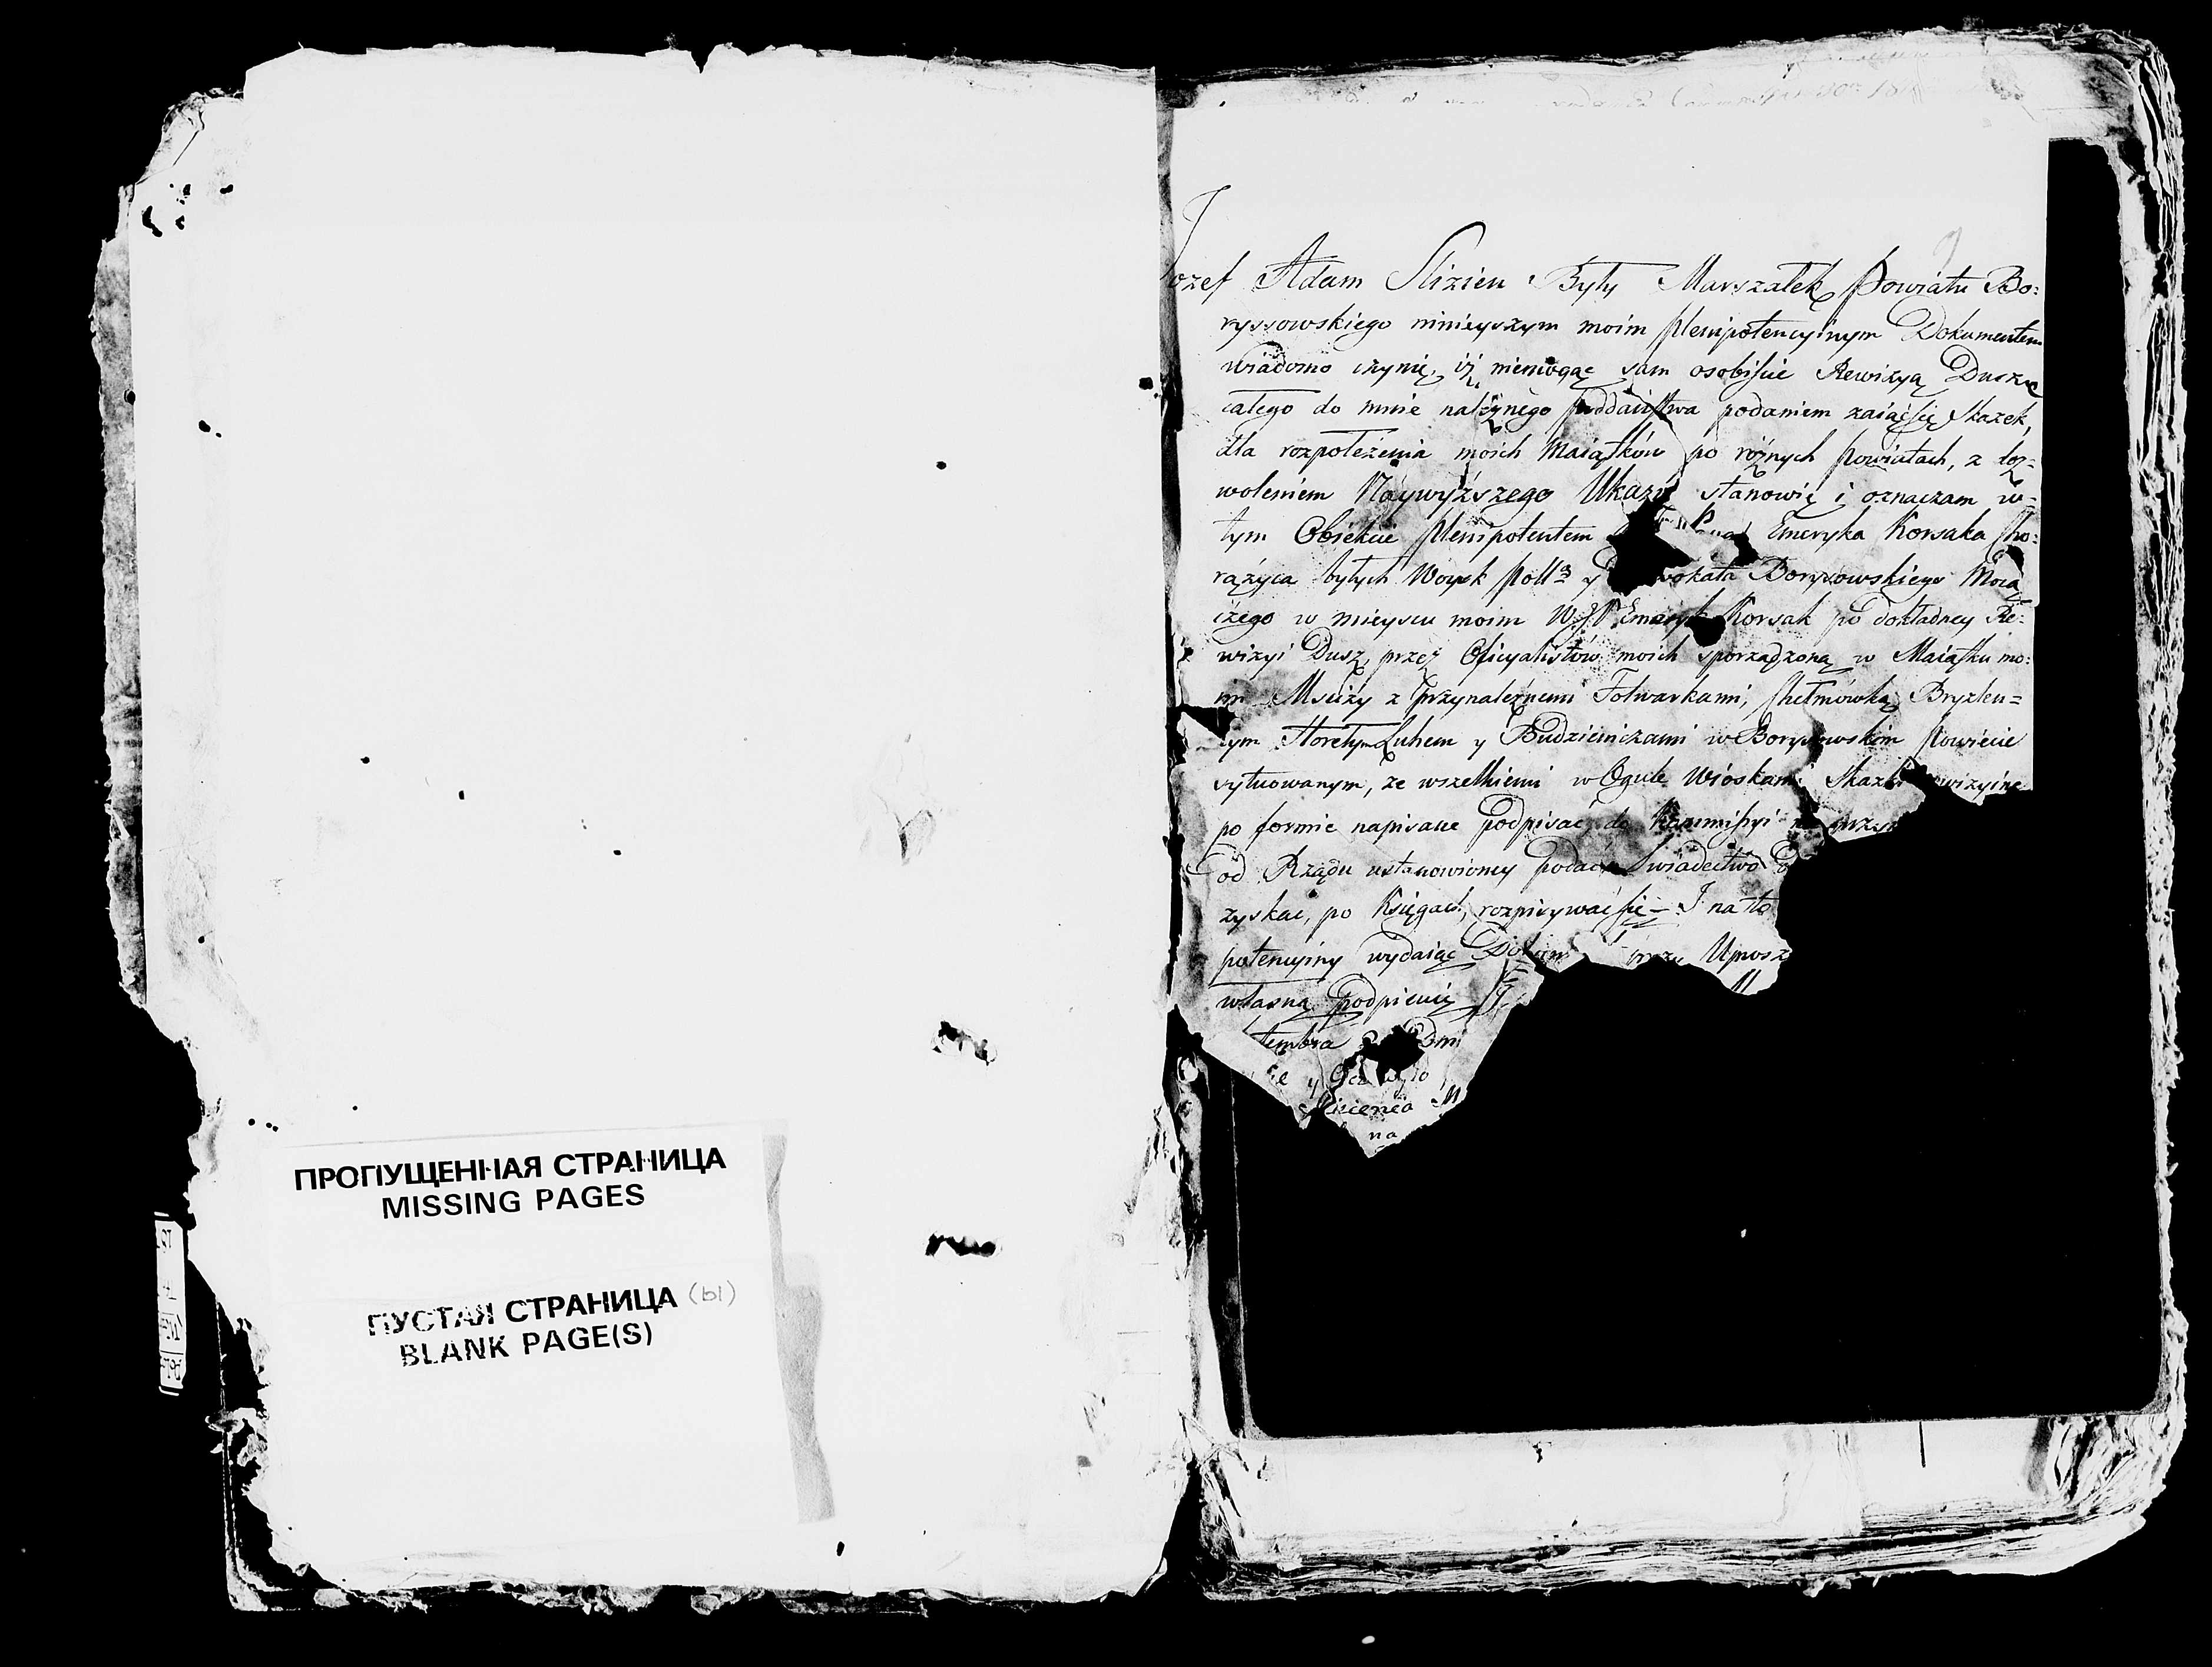 ПРОПУЩЕННАЯ СТРАНИЦА
MISSING PAGES
ПУСТАЯ СТРАНИЦА (ы)
BLANK PAGE(S)
Jozef Adam Slizien Były Marszałek Powiatu Bo:
ryssowskiego ninieyszym moim plenipotencyinym Dokumentem
wiadomo czynię, iż niemogąc sam osobiście Rewizyą Duszną
całego do mnie należnego poddaństwa podaniem zaiąć się Skazek,
dla rozpołeżenia moich Maiątków po różnych Powiatach, z doz=
woleniem Naywyższego Ukazu stanowię i oznaczam w=
tym Obiekcie plenipotentem Emeryka Korsaka Cho:
rążyca byłych Woysk Poll. y Borysowskiego Mocą
czego w mieyscu moim W.J.P. Emeryk Korsak po dokładney Re:
wizyi Dusz, przez Oficyalistów moich sporządzoną w Maiątku mo:
im Mscizy z przynależnemi Folwarkami, Chełmówką, Bryzku=
tym Luhem y Budziniczkami w Borysowskim Powiecie
sytuowanym, ze wszelkiemi w Ogule Wioskami Skazki
po formie napisane podpisać, do Kommissyi
od Rządu ustanowioney podać, Swiadectwo
zyskać, po Księgach rozpisywać się — J na to
potencyiny wydaiąc
własną podpisuię
tembra
y
Slizienia M
na